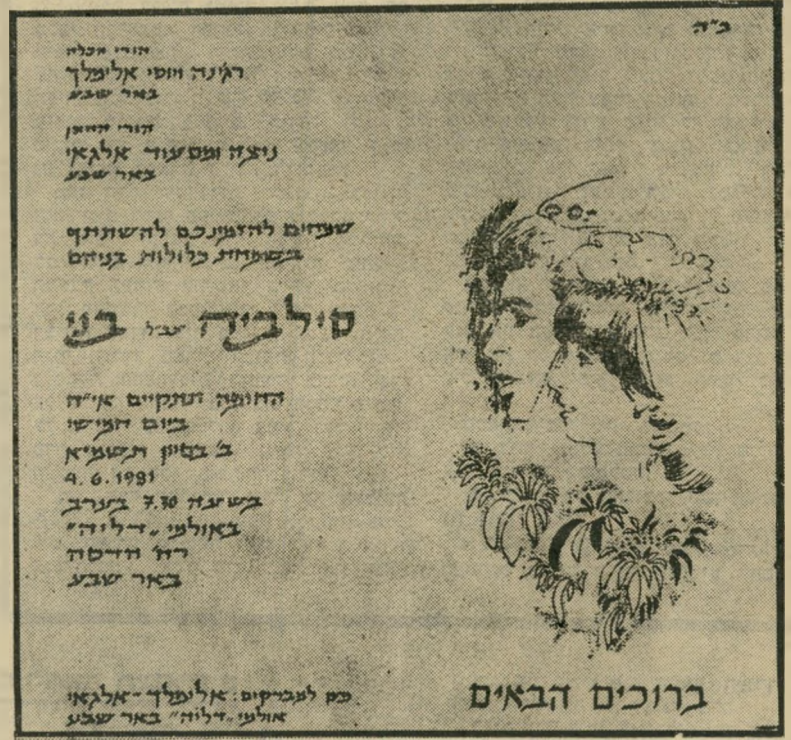 ב"ה
הורי הכלה
רג'ינה ויוסי אלימלך
באר שבע
הורי החתן
ניצה ומסעוד אלגאי
באר שבע
שמחים להזמינכם להשתתף
בשמחת כלולות בניהם
סילביה עב"ל בני
החופה תתקיים אי"ה
ביום חמישי
ב' בסיון תשמ"א
4.6.1981
בשעה 7.30 בערב
באולמי "דליה"
רח' הדסה
באר שבע
מען למברקים: אלימלך-אלגאי
אולמי "דליה" באר שבע
ברוכים הבאים